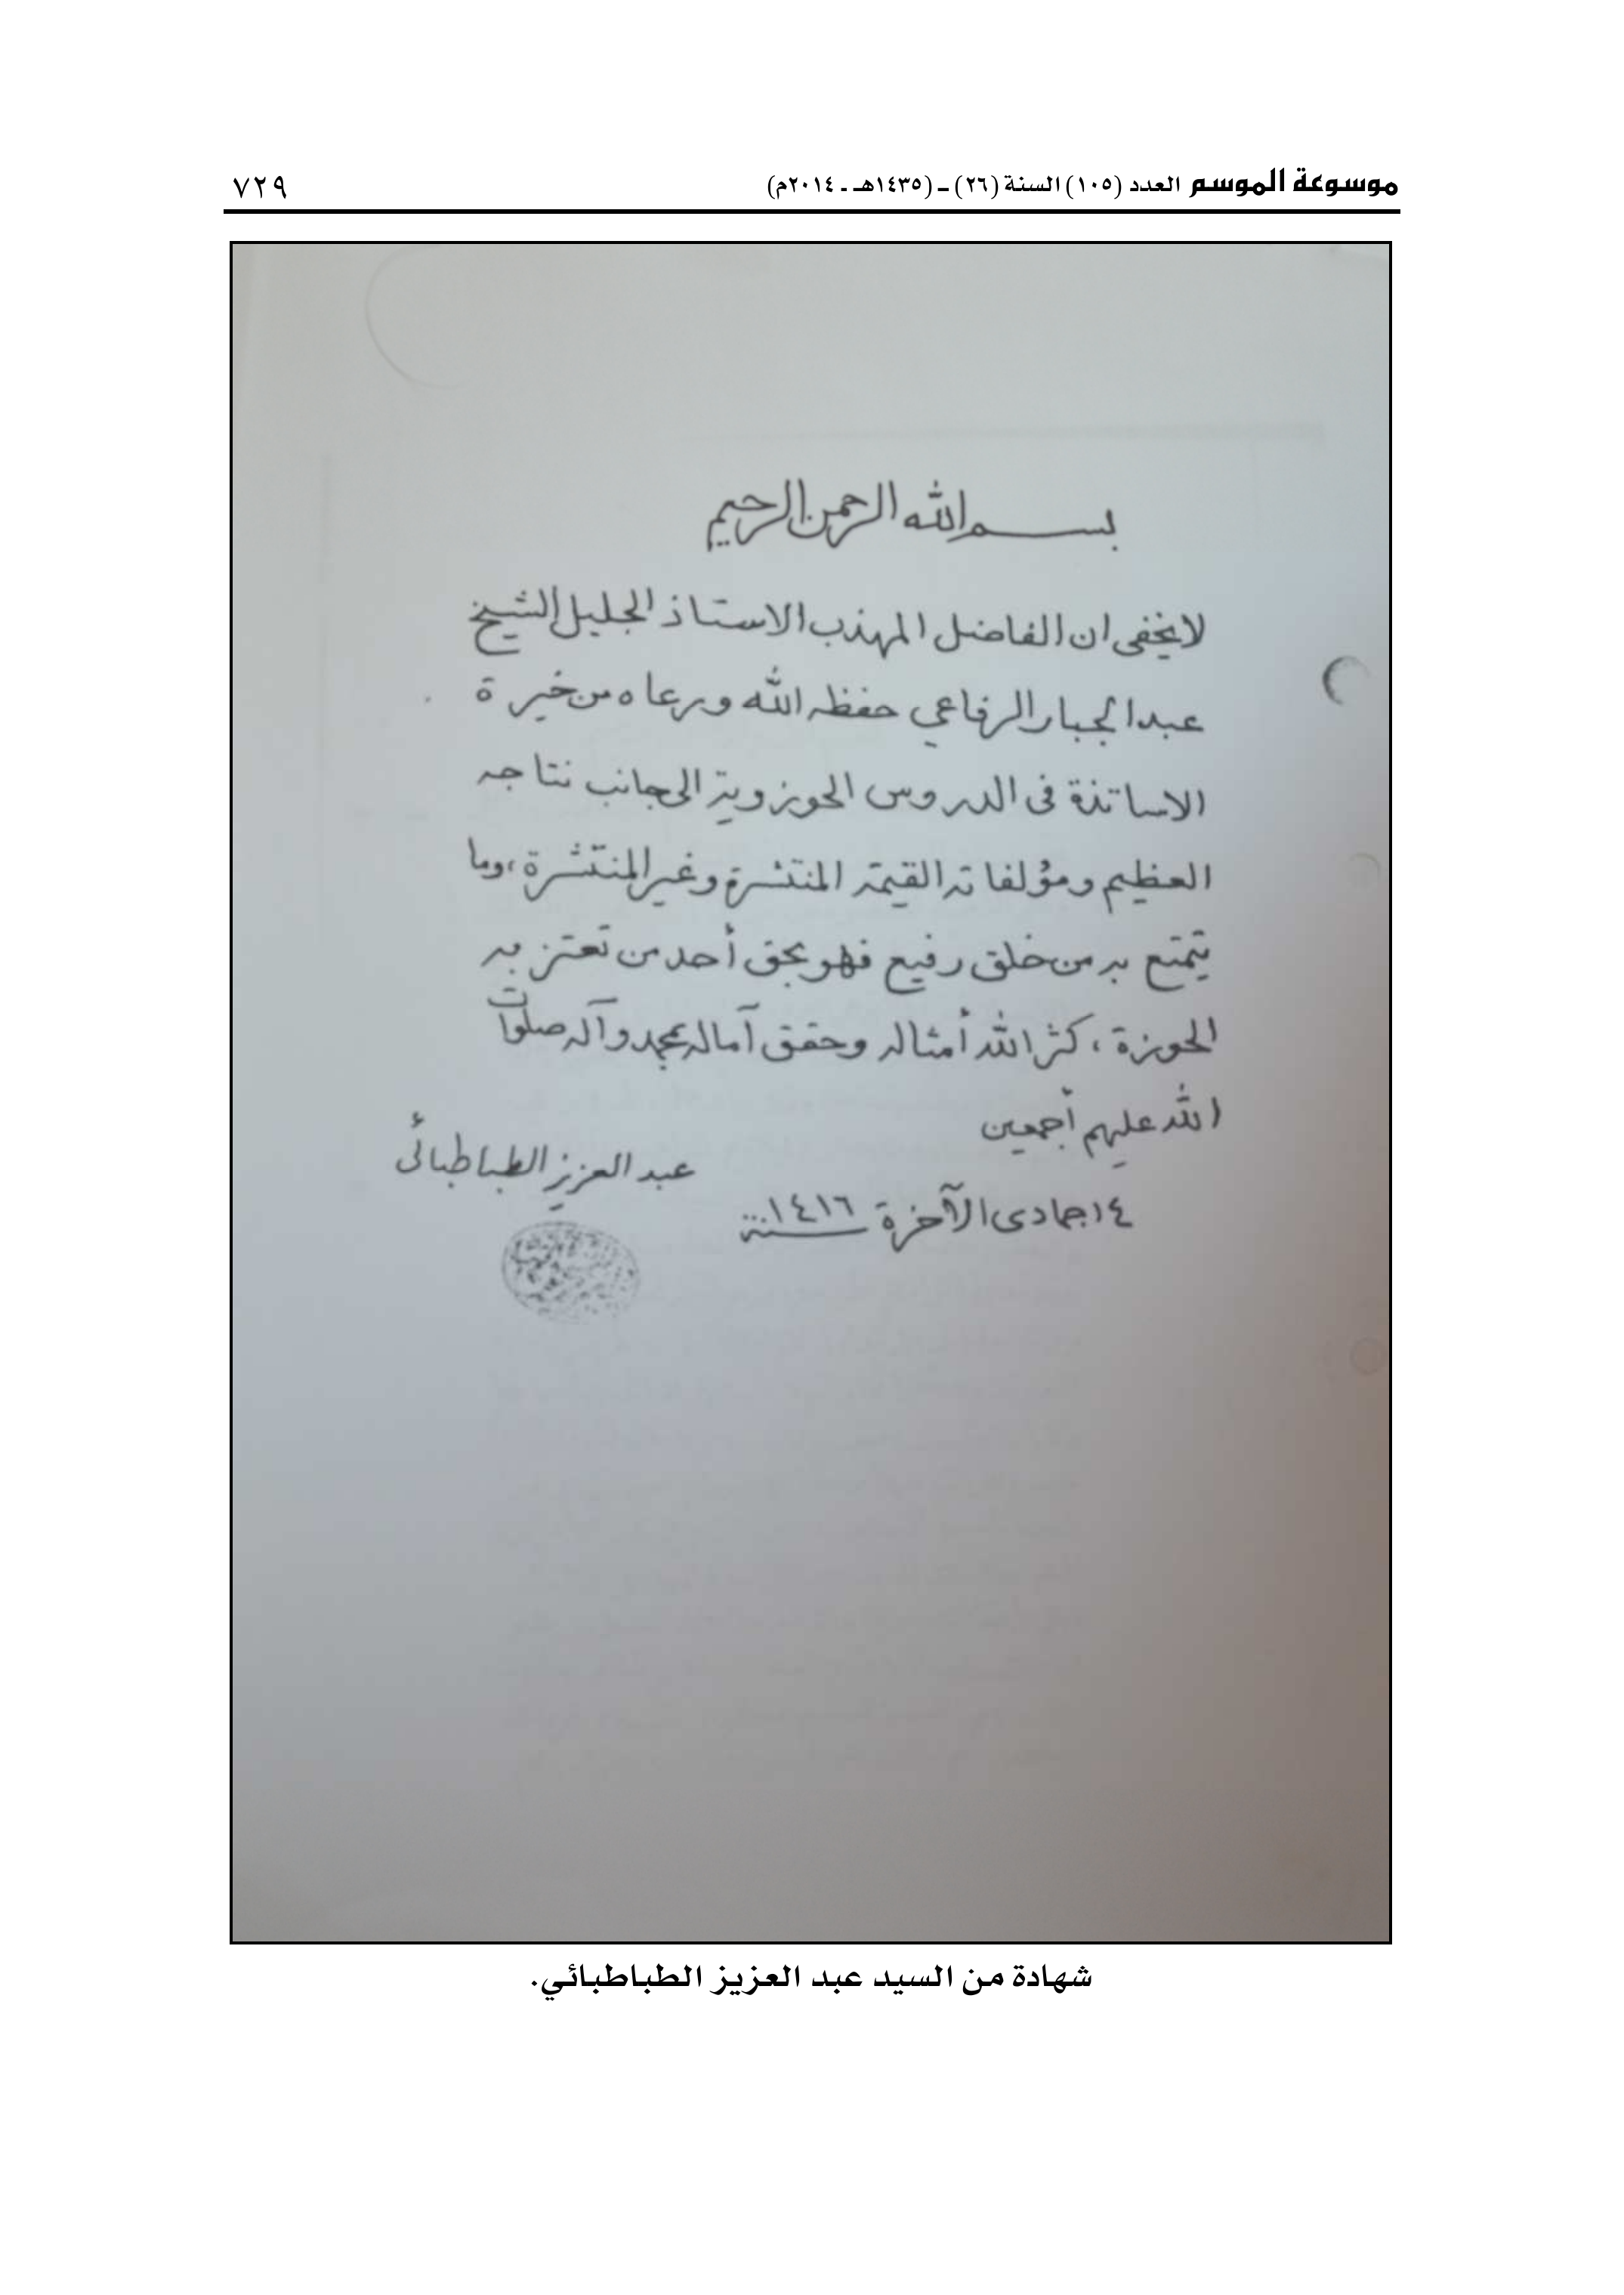 موسوعة الموسم العدد (١٠٥) السنة (٢٦) ـ (١٤٣٥هـ ـ ٢٠١٤م) ٧٢٩
بسم الله الرحمن الرحيم
لا يخفى ان الفاضل المهذب الاستاذ الجليل الشيخ
عبد الجبار الرفاعي حفظه الله ورعاه من خيرة
الاساتذة في الدروس الحوزوية الى جانب نتاجه
العظيم ومؤلفاته القيمة المنتشرة وغير المنتشرة، وما
يتمتع به من خلق رفيع فهو بحق أحد من تعتز به
الحوزة، كثر الله أمثاله وحقق آماله بمحمد وآله صلوات
الله عليهم أجمعين
عبد العزيز الطباطبائي
١٤ جمادى الآخرة سنة ١٤١٦
شهادة من السيد عبد العزيز الطباطبائي.